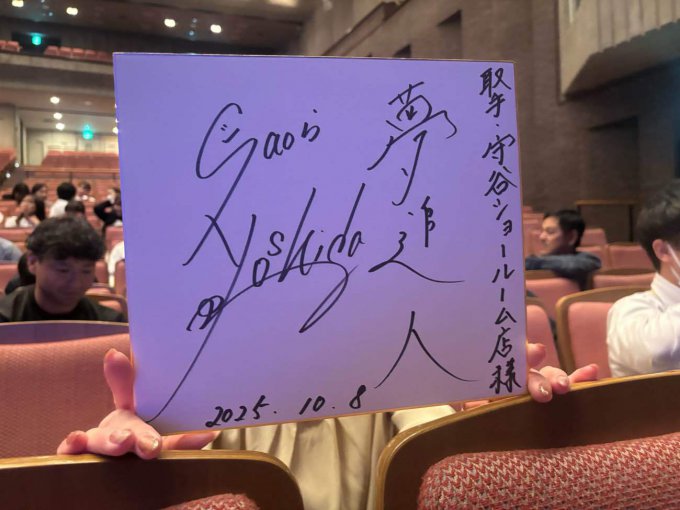 取手・守谷ショールーム店様
夢追人
Saori
Yoshida
2025.10.8